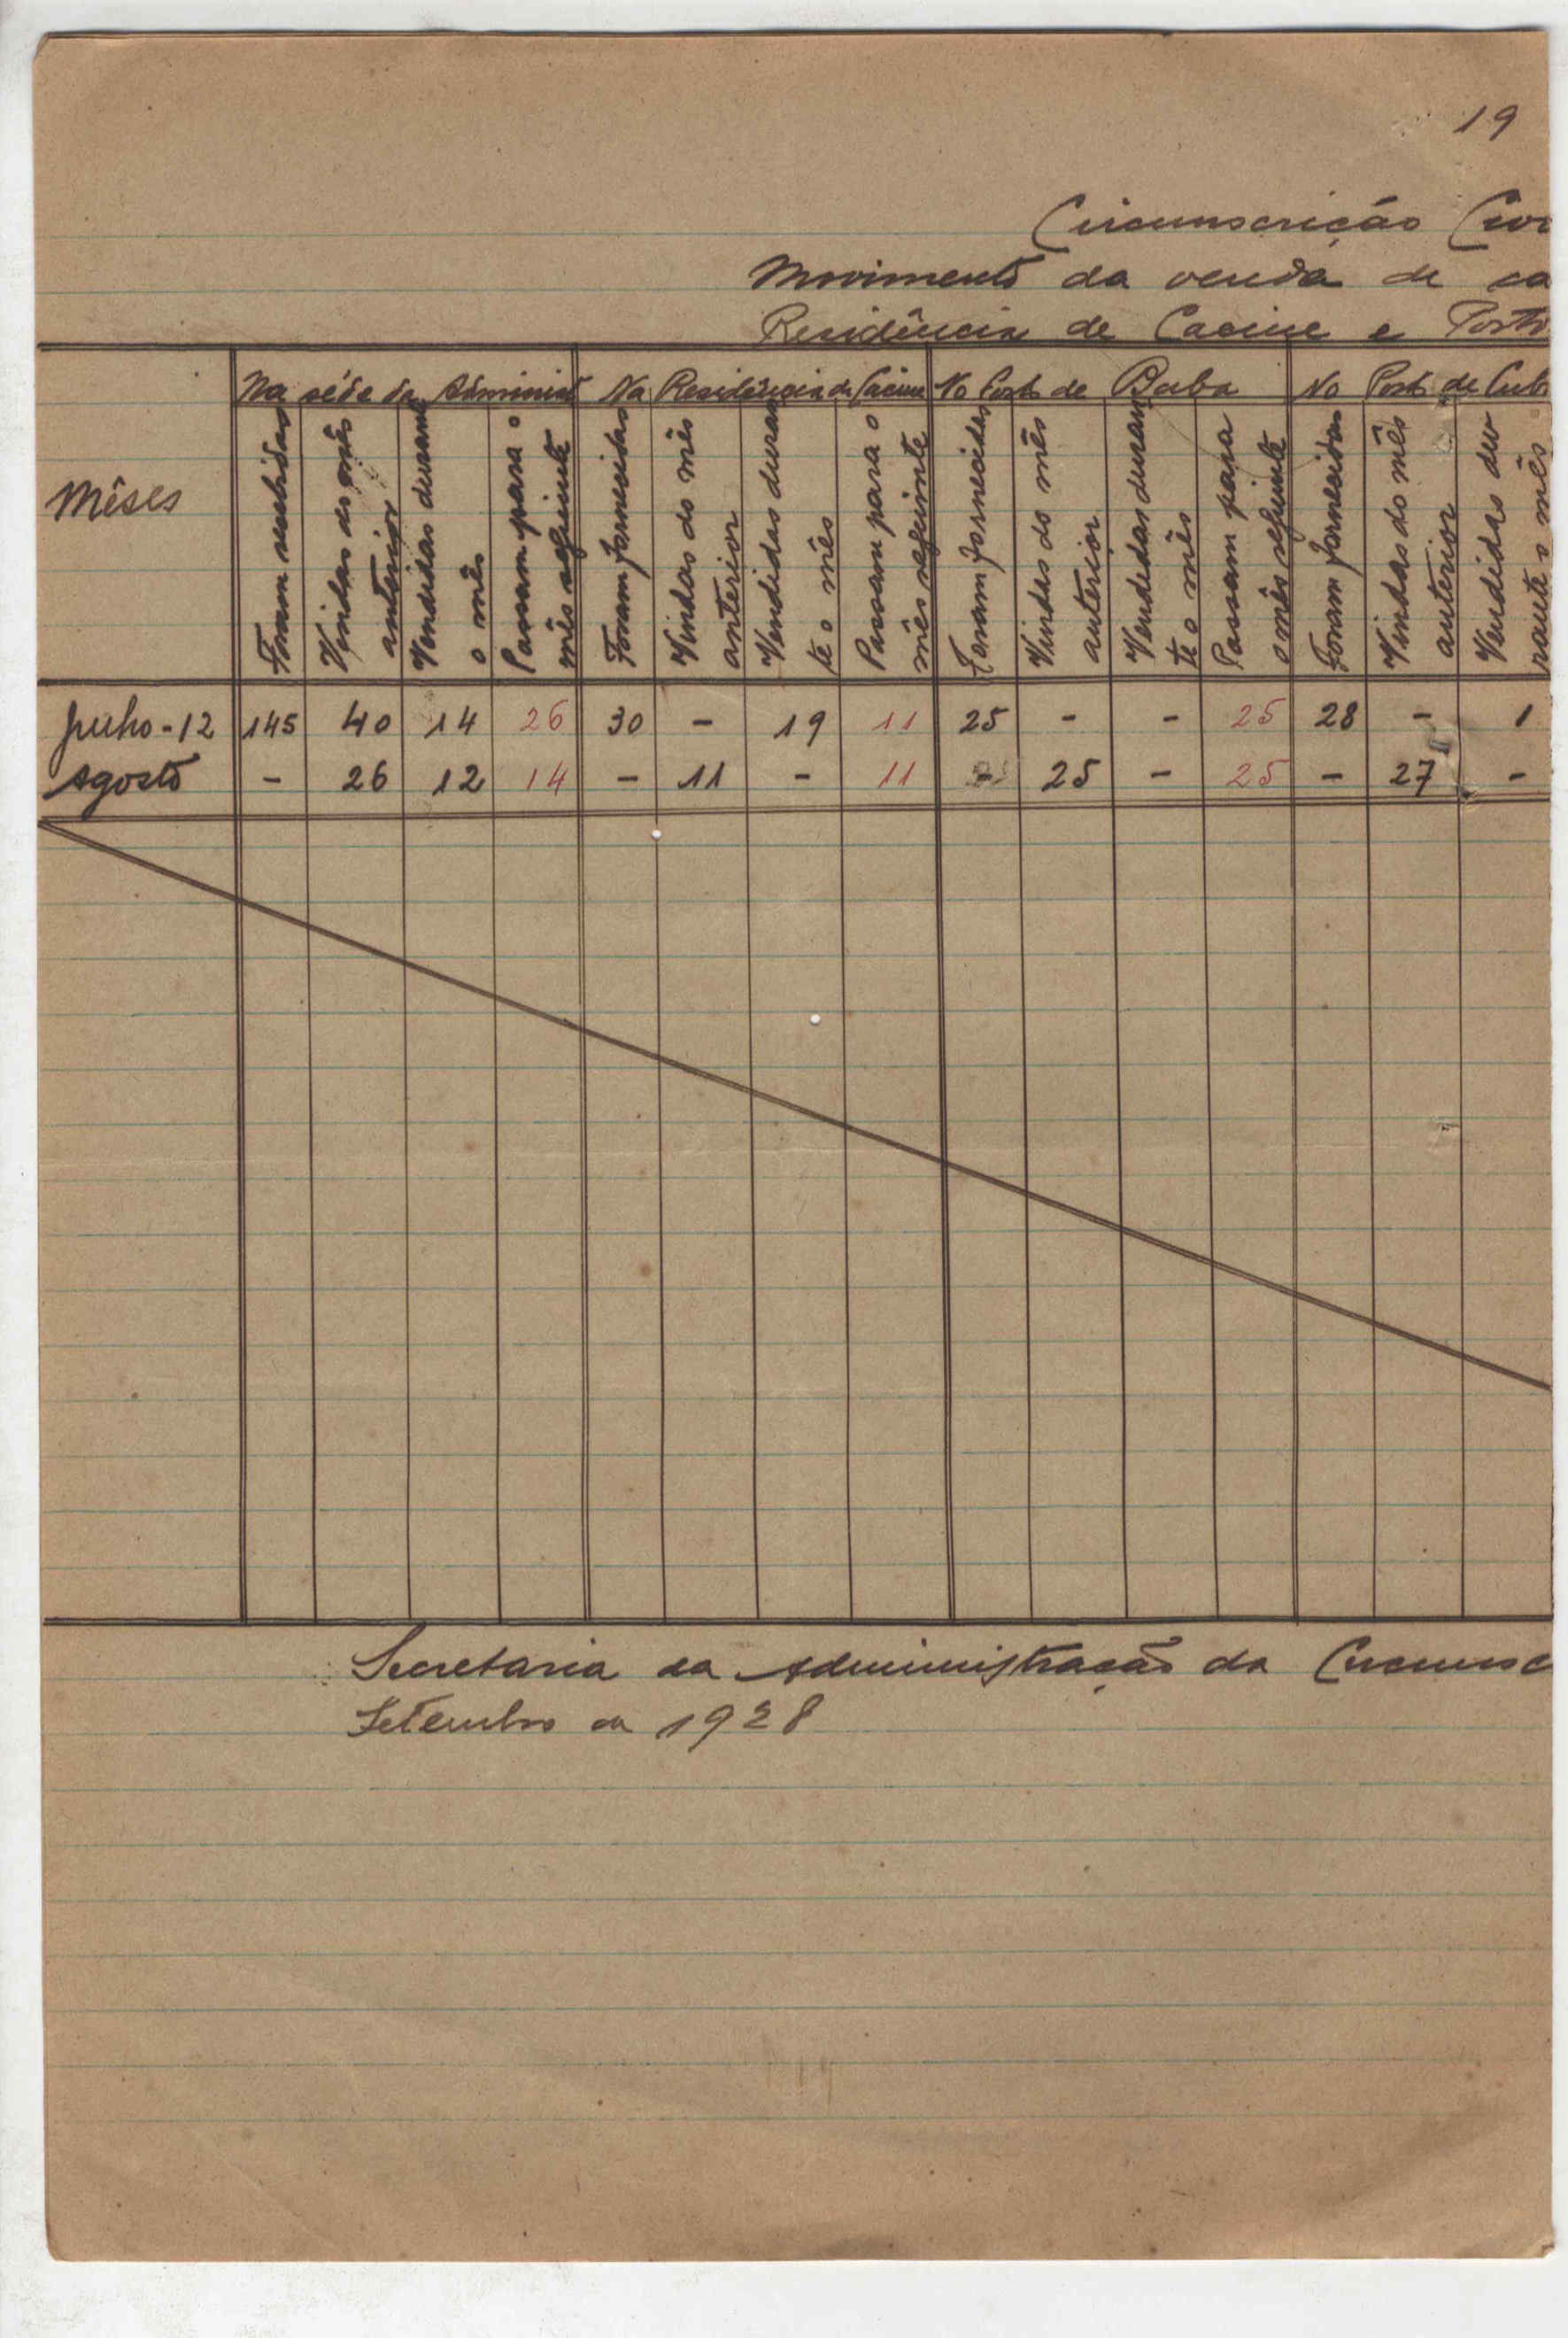 19
Circunscrição Civi
Movimento da venda de ca
Residência de Cacine e Posto
Mêses
Na séde da Administ
Na Residência de Cacine
No Posto de Buba
No Posto de Cub
Foram recebidas
Vindas do mês anterior
Vendidas durante o mês
Passam para o mês seguinte
Foram fornecidas
Vindas do mês anterior
Vendidas duran te o mês
Passam para o mês seguinte
Foram fornecidas
Vindas do mês anterior
Vendidas duran te o mês
Passam para o mês seguinte
Foram fornecidas
Vindas do mês anterior
Vendidas du rante o mês
Julho - 12 145 40 14 26 30 - 19 11 25 - - 25 28 - 1
Agosto - 26 12 14 - 11 - 11 - 25 - 25 - 27 -
Secretaria da Administração da Circunsc
Setembro de 1928